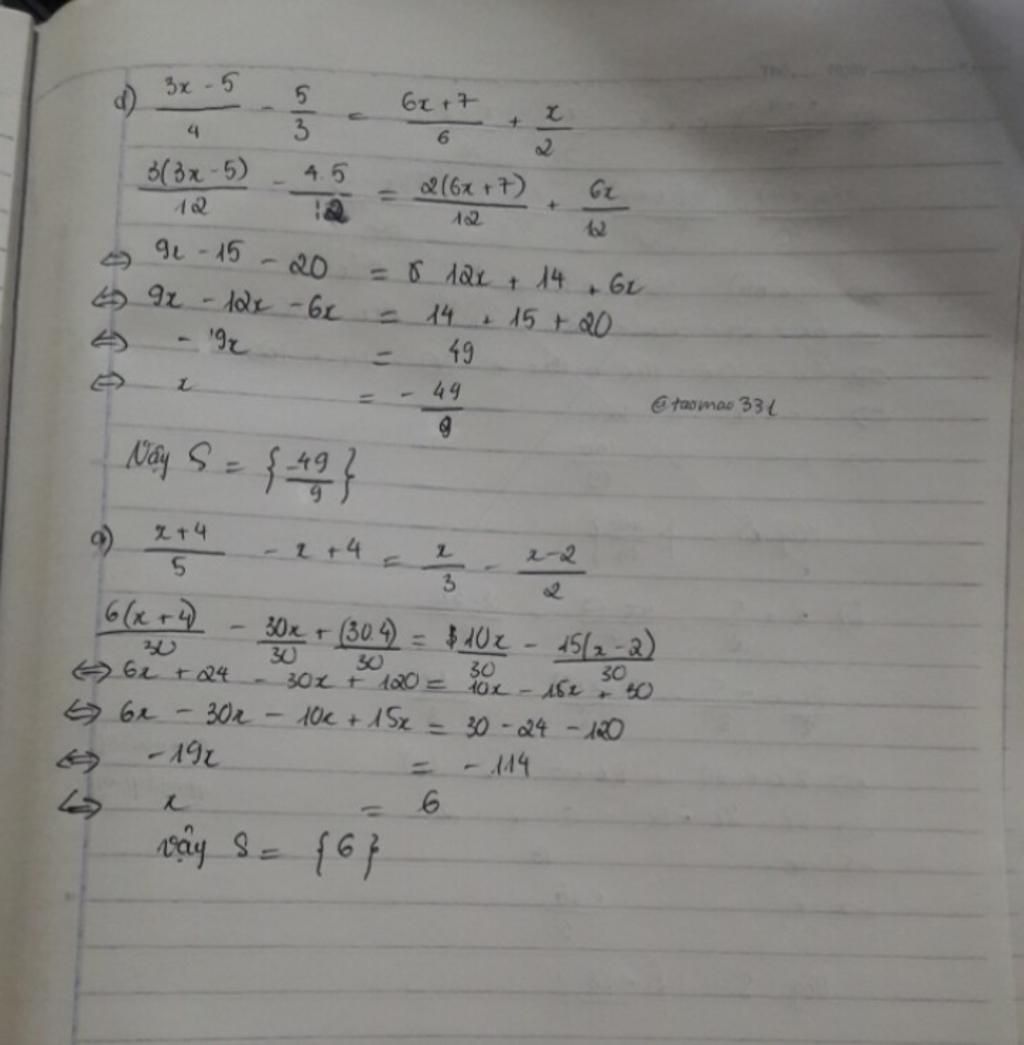 d) (3x - 5)/4 - 5/3 = (6x + 7)/6 + x/2
3(3x - 5)/12 - 4.5/12 = 2(6x + 7)/12 + 6x/12
⇔ 9x - 15 - 20 = 12x + 14 + 6x
⇔ 9x - 12x - 6x = 14 + 15 + 20
⇔ - 9x = 49
⇔ x = - 49/9
@taomao331
Vậy S = {-49/9}
g) (x + 4)/5 - x + 4 = x/3 - (x - 2)/2
6(x + 4)/30 - 30x/30 + (30.4)/30 = 10x/30 - 15(x - 2)/30
⇔ 6x + 24 - 30x + 120 = 10x - 15x + 30
⇔ 6x - 30x - 10x + 15x = 30 - 24 - 120
⇔ - 19x = - 114
⇔ x = 6
vậy S = {6}